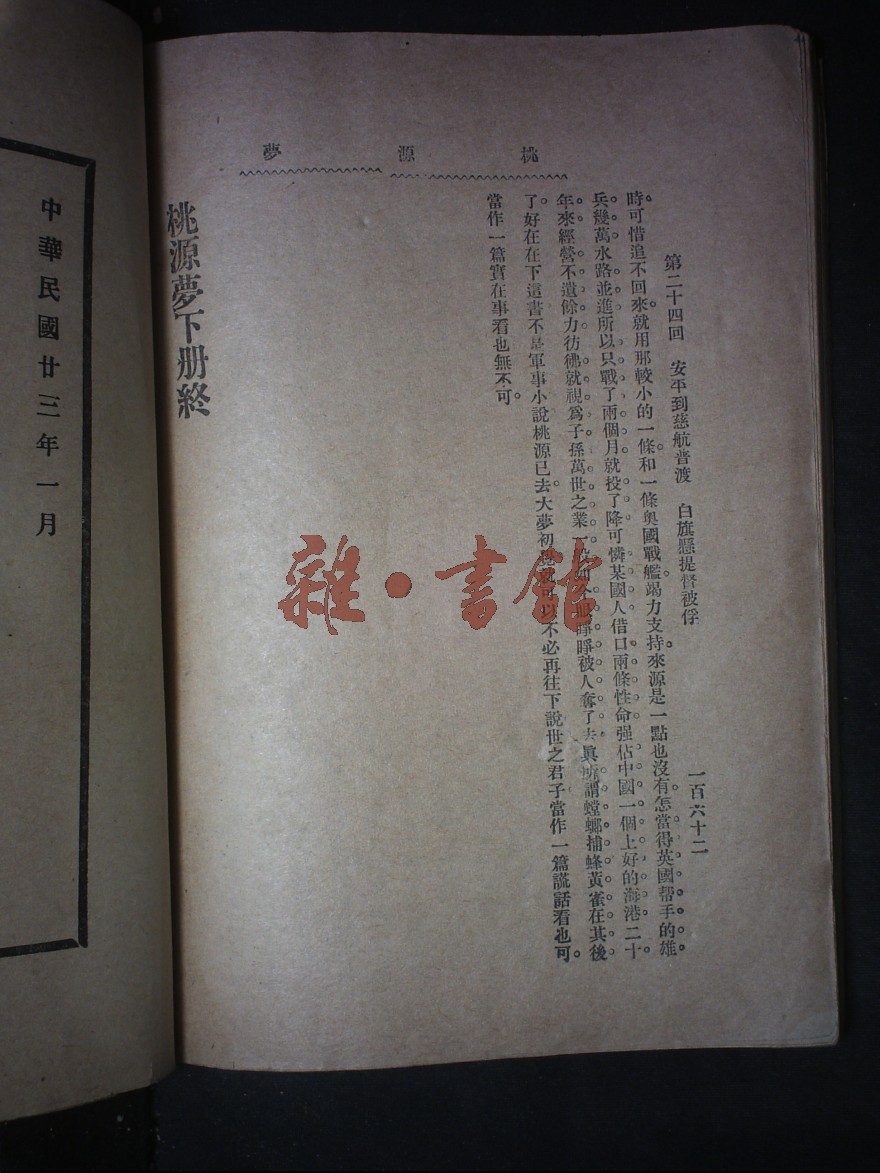 桃源夢
第二十四回　安平到慈航普渡　白旗懸提督被俘　一百六十二
時可惜追不回來。就用那較小的一條和一條奧國戰艦竭力支持。來源是一點也沒有。怎當得英國帮手的雄
兵幾萬水路並進。所以只戰了兩個月就投了降。可憐某國人借口兩條性命强佔中國一個上好的海港。二十
年來經營不遺餘力。彷彿就視爲子孫萬世之業。睜睜被人奪了去。眞所謂螳螂捕蜂黃雀在其後
了。好在在下這書不是軍事小說。桃源已去。大夢初不必再往下說。世之君子當作一篇謊話看也可。
當作一篇實在事看也無不可。
桃源夢下册終
中華民國廿三年一月
雜·書館